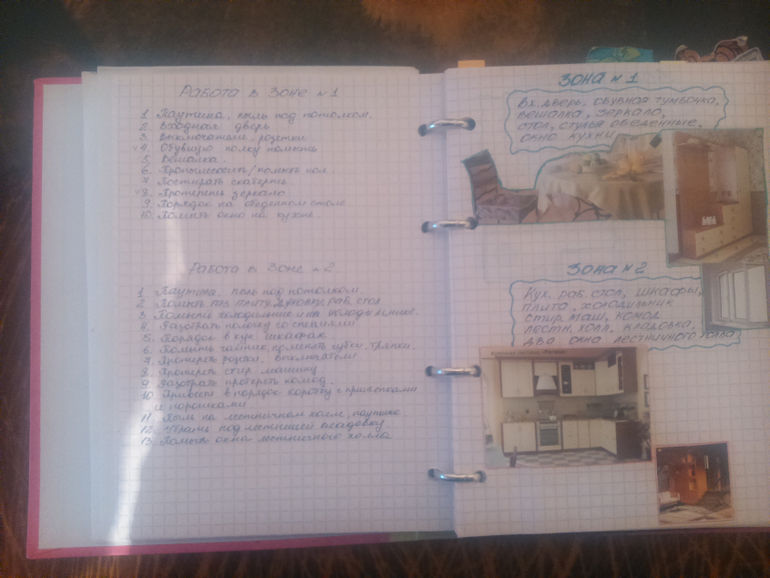 Работа в Зоне №1
1. Паутина, пыль под потолком.
2. Входная дверь
3. Выключатели, розетки
4. Обувную полку помыть
5. Вешалка.
6. Пропылесосить/помыть пол.
7. Постирать скатерть
8. Протереть зеркало.
9. Порядок на обеденном столе
10. Помыть окно на кухне.
Работа в Зоне №2
1. Паутина, пыль под потолком.
2. Помыть плиту, духовку, раб. стол
3. Помыть холодильник и на холодильнике.
4. Разобрать полочку со специями
5. Порядок в кух. шкафах
6. Помыть чайник, поменять губки, тряпки.
7. Протереть розетки, выключатели
8. Протереть стир. машину
9. Разобрать протереть комод.
10. Привести в порядок коробку с прищепками
и порошками
11. Пыль на лестничном холле, паутина
12. Убрать под лестницей кладовку
13. Помыть окна лестничного холла
ЗОНА №1
Вх. дверь, обувная тумбочка,
вешалка, зеркало,
стол, стулья обеденные,
окно кухни
ЗОНА №2
Кух. раб. стол, шкафы,
плита, холодильник
стир. маш, комод
лестн. холл, кладовка,
два окна лестничного холла